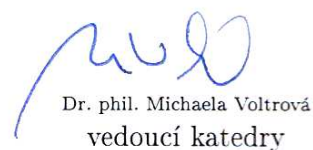 Dr. phil. Michaela Voltrová
vedoucí katedry